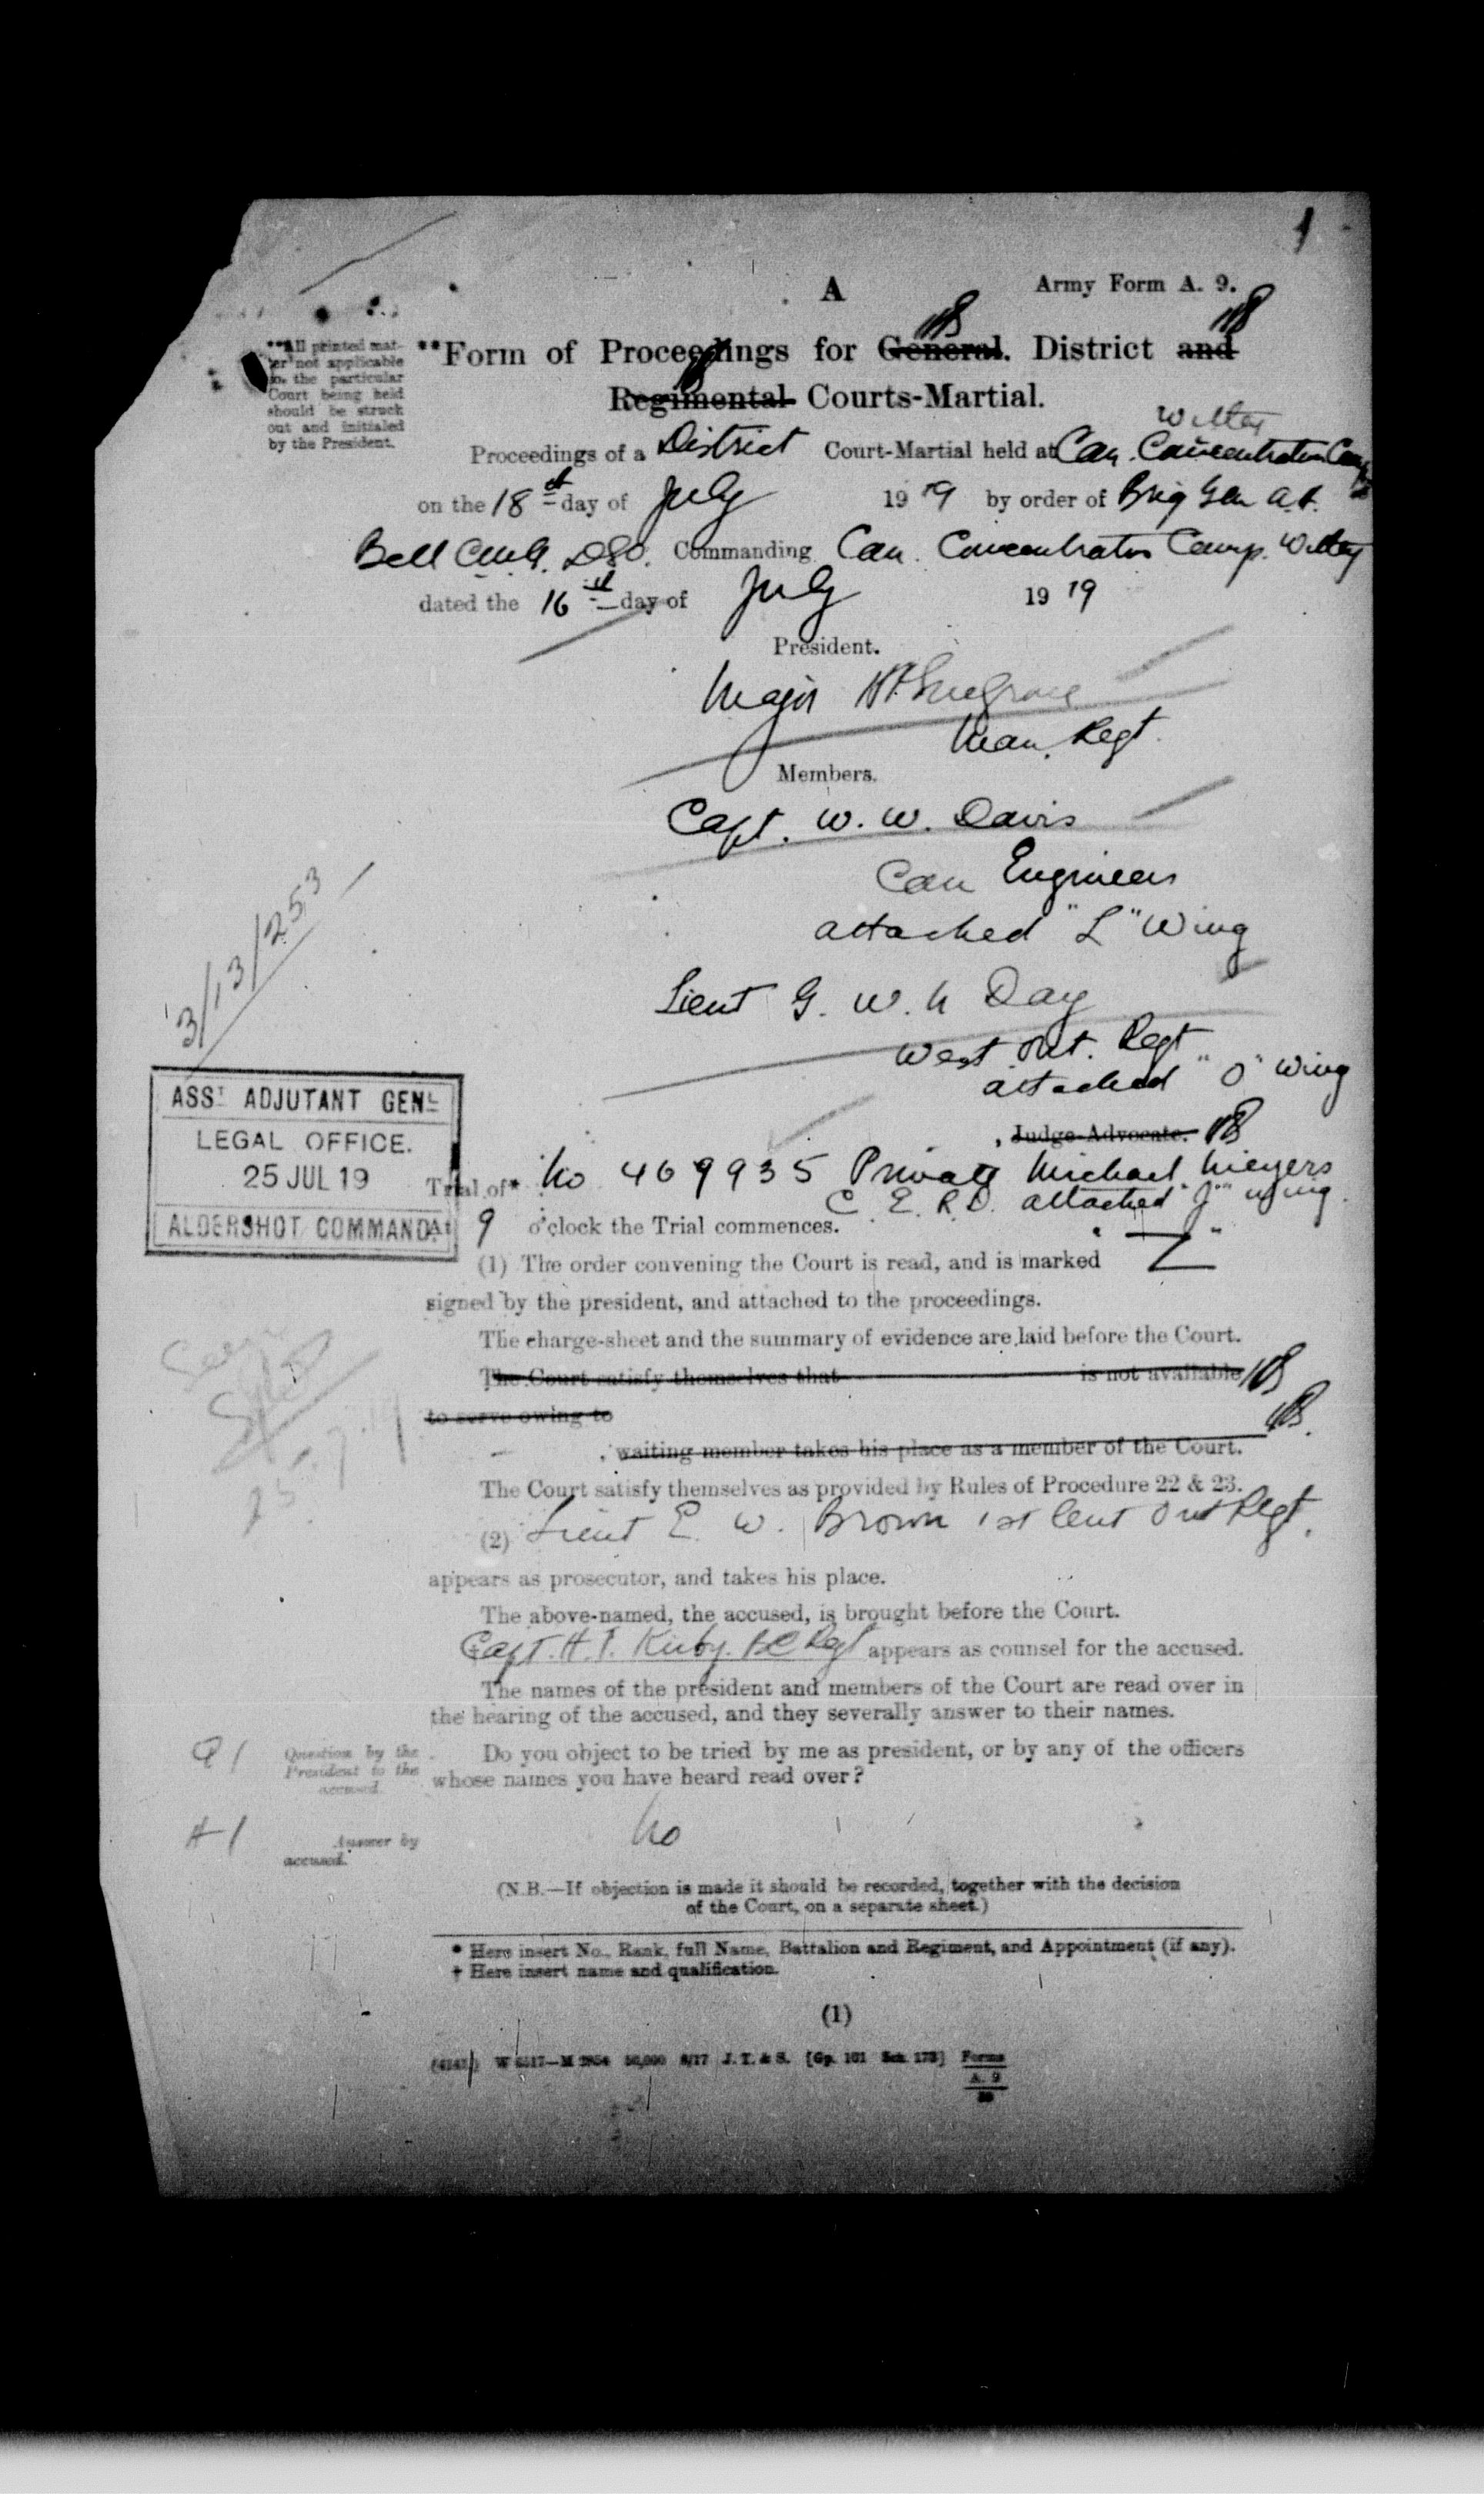 1
A
Army Form A. 9.
**All printed mat-
ter not applicable
to the particular
Court being held
should be struck
out and initialed
by the President.
**Form of Proceedings for General. District and
Regimental Courts-Martial.
Witley
Proceedings of a District Court-Martial held at Can. Concentration Camp
on the 18th day of July 1919 by order of Brig Gen A.H.
Bell CMG. DSO. Commanding Can. Concentration Camp. Witley
dated the 16th day of July 1919
President.
Major
Man. Regt.
Members.
Capt. W. W. Davis
Can Engineers
attached "L" Wing
Lieut G. W. H Day
West Ont. Regt
attached "O" Wing
3/13/253
ASST ADJUTANT GENL
LEGAL OFFICE.
25 JUL 19
ALDERSHOT COMMAND
Judge-Advocate.
Trial of* No 469935 Private Michael Meyers
C. E. R. D. attached "J" Wing.
At 9 o'clock the Trial commences.
(1) The order convening the Court is read, and is marked "Z"
signed by the president, and attached to the proceedings.
The charge-sheet and the summary of evidence are laid before the Court.
The Court satisfy themselves that is not available
to serve owing to
waiting member takes his place as a member of the Court.
The Court satisfy themselves as provided by Rules of Procedure 22 & 23.
(2) Lieut E. W. Brown 1st Cent Ont Regt.
appears as prosecutor, and takes his place.
The above-named, the accused, is brought before the Court.
Capt. H. T. Kirby. BC Regt appears as counsel for the accused.
The names of the president and members of the Court are read over in
the hearing of the accused, and they severally answer to their names.
Q1
Question by the
President to the
accused.
Do you object to be tried by me as president, or by any of the officers
whose names you have heard read over?
A1
Answer by
accused.
No
(N.B.—If objection is made it should be recorded, together with the decision
of the Court, on a separate sheet.)
* Here insert No., Rank, full Name, Battalion and Regiment, and Appointment (if any).
† Here insert name and qualification.
(1)
50,000 8/17 J. T. & S. [Gp. 101 Sch. 173] Forms
A. 9